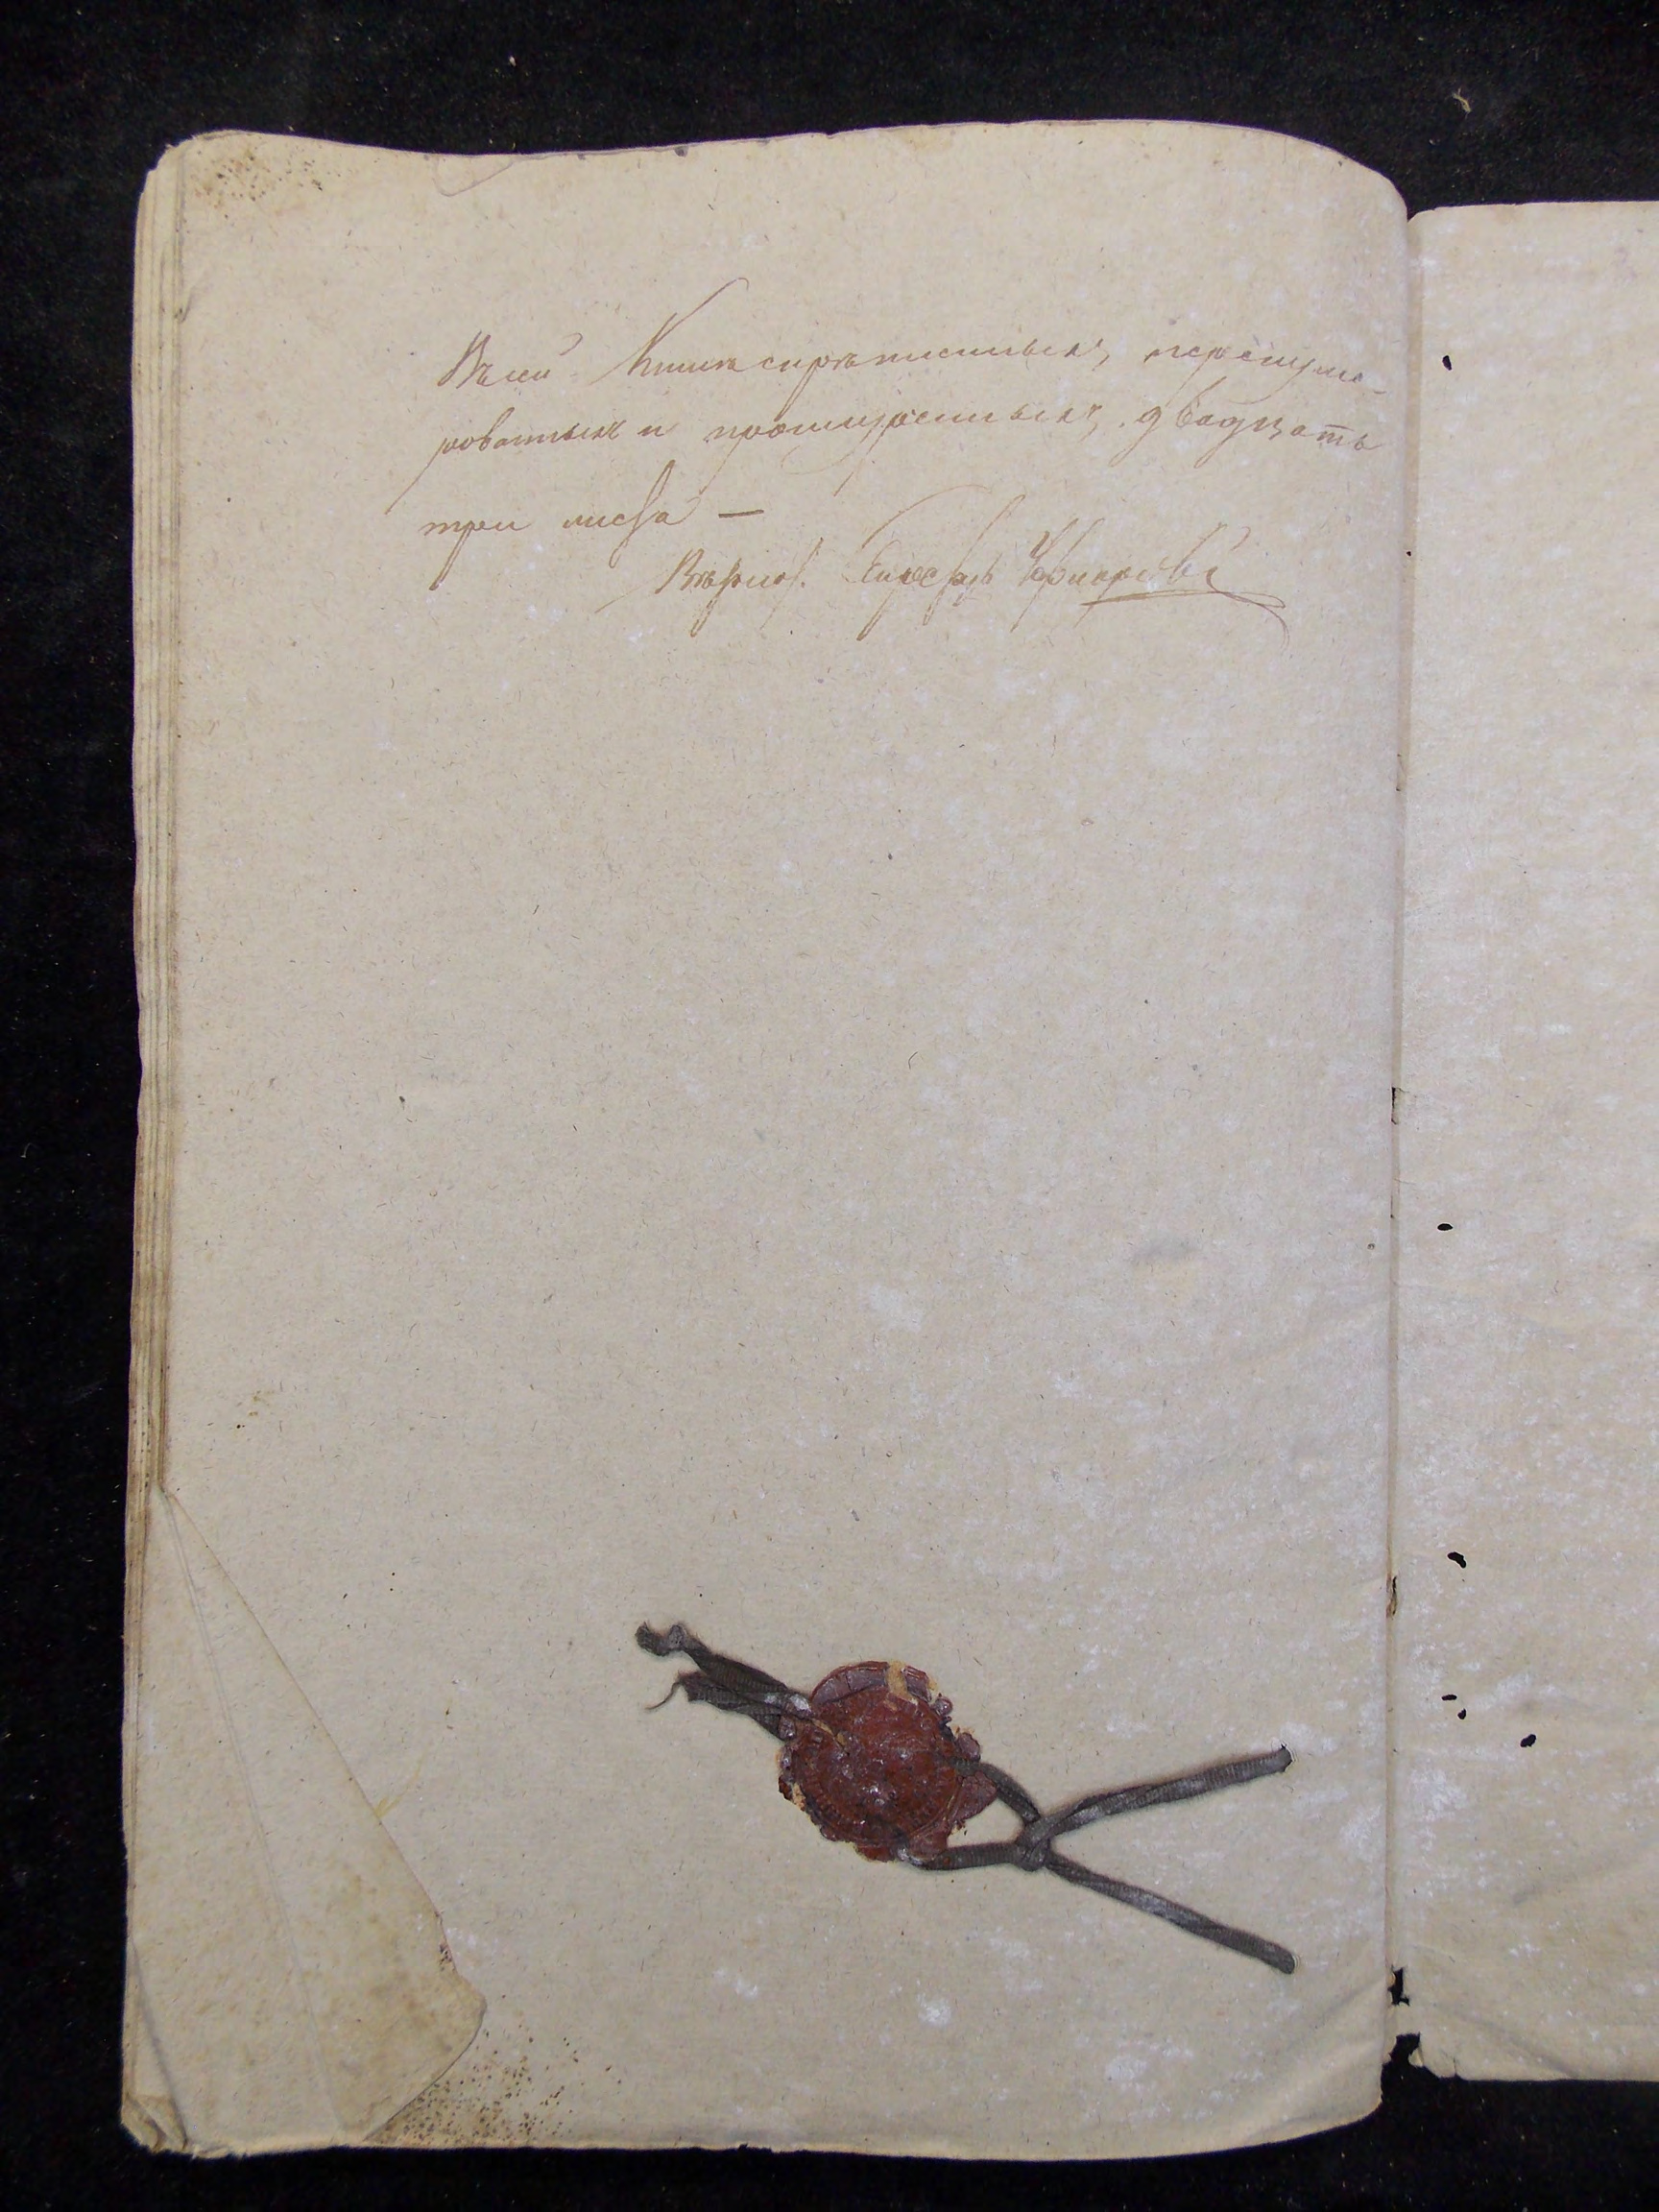 Въ сей Книге скрѣпленныхъ, перенуме-
рованныхъ и прошнурованныхъ, двадцать
три листа —
Секретарь